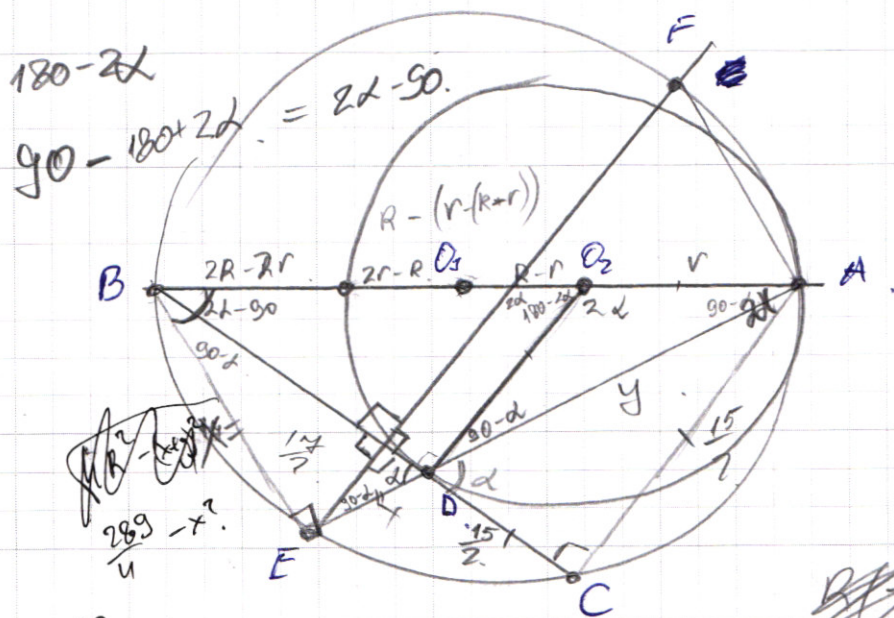 180-2α
90 - 180+2α = 2α-90.
F
R - (r-(R-r))
B
2R-2r
2r-R
O₁
R-r
O₂
r
A
2α-90
2α
180-2α
2α
90-
90-α
90-α
y
15
17/2
α
90-α
x
D
α
15/2
289/4 - x².
E
C